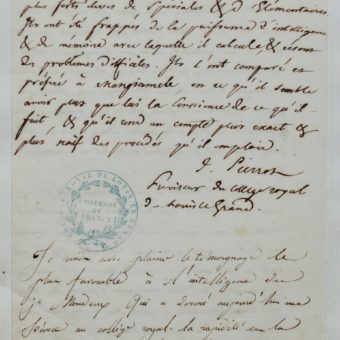 plus forts élèves de Spéciales & d'Elémentaires
Ils ont été frappés de la puissance d'intelligence
& de mémoire avec laquelle il calcule & résout
des problèmes difficiles. Ils l'ont comparé et
préféré à Mangiamele en ce qu'il semble
avoir plus que lui la conscience de ce qu'il
fait & qu'il rend un compte plus exact &
plus naïf des procédés qu'il emploie.
J. Pierrot
Proviseur du collège royal
de Louis le Grand.
UNIVERSITÉ
DE
FRANCE
Je rends avec plaisir le témoignage le
plus favorable à l'intelligence du
je Mondeux qui a donné aujourd'hui une
séance au collège royal. la rapidité en la